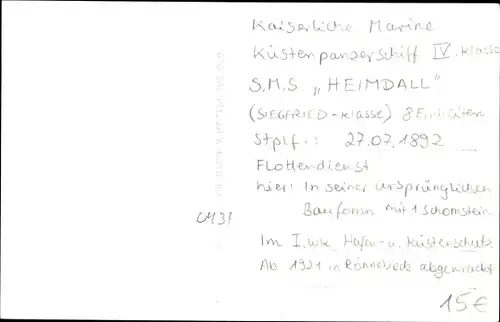 Kaiserliche Marine
Küstenpanzerschiff IV. Klasse
S.M.S „HEIMDALL"
(SIEGFRIED-Klasse) 8 Einheiten
Stplf.: 27.07.1892
Flottendienst
hier: In seiner ursprünglichen
Bauform mit 1 Schornstein
Im I.WK Hafen- u. Küstenschutz
Ab 1921 in Rönnebeck abgewrackt
CM31
15€